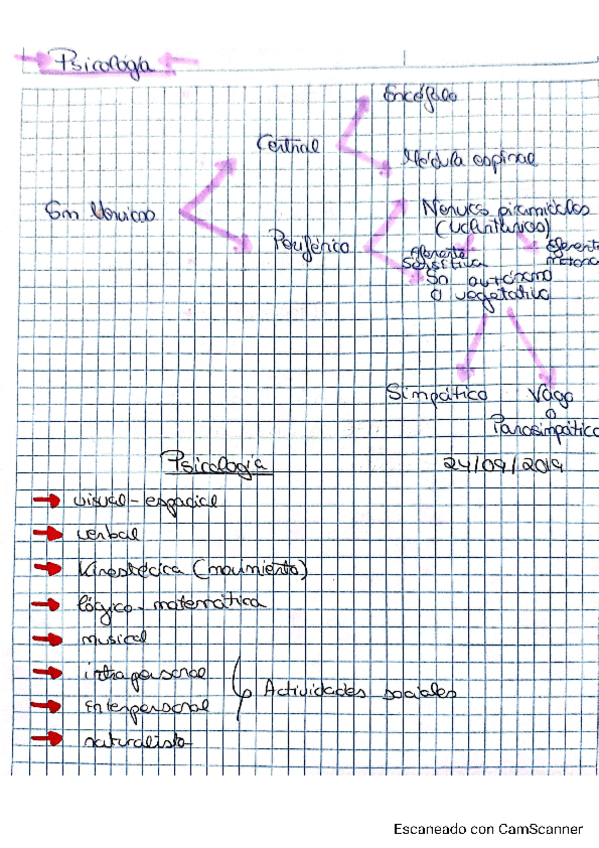 Psicología
Encéfalo
Central
Médula espinal
Sm Nervioso
Nervios piramidales
(voluntarios)
Periférico
Aferente
Sensitiva
eferente
motora
Sn autónomo
o vegetativo
Simpático
Vago
o
Parasimpático
Psicología
24/09/2019
visual-espacial
verbal
Kinestécica (movimiento)
lógico-matemática
musical
intrapersonal
Actividades sociales
interpersonal
naturalista
Escaneado con CamScanner